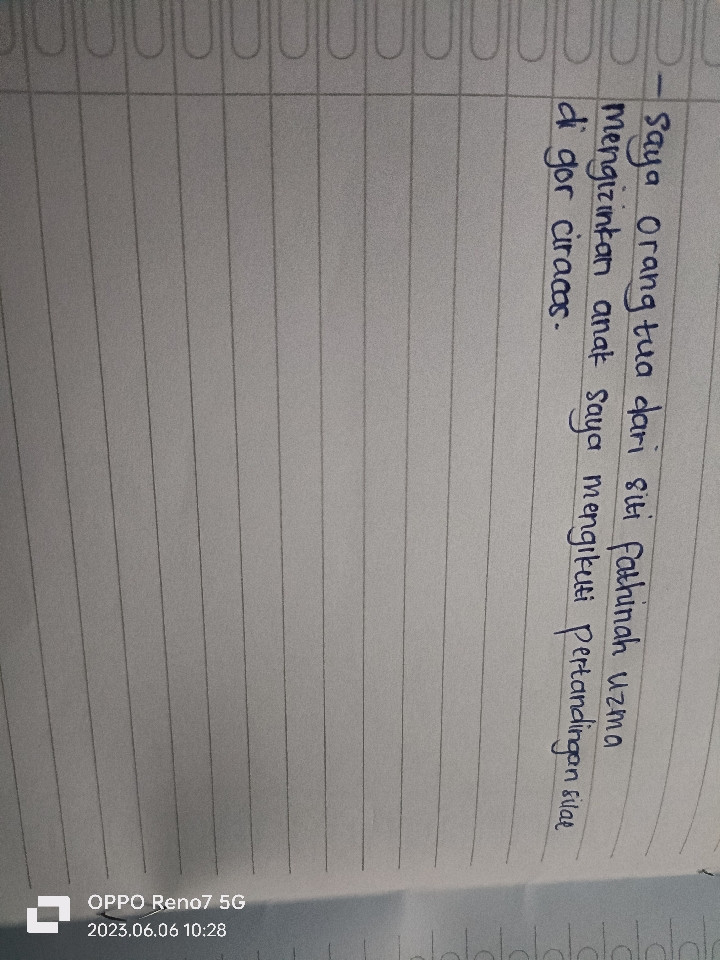 - Saya orang tua dari siti fathinah uzma
mengizinkan anak saya mengikuti pertandingan silat
di gor ciracas.
OPPO Reno7 5G
2023.06.06 10:28